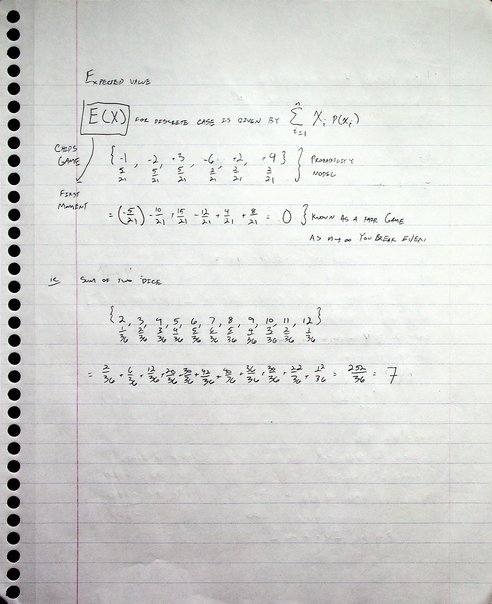 EXPECTED VALUE
E(X) FOR DISCRETE CASE IS GIVEN BY n Σ i=1 Xi P(xi)
CHIPS GAME { -1, -2, +3, -6, +2, +4 } PROBABILITY MODEL
5/21 5/21 5/21 2/21 2/21 2/21
FIRST MOMENT
= (-5/21) - 10/21 + 15/21 - 12/21 + 4/21 + 8/21 = 0 } KNOWN AS A FAIR GAME
AS n→∞ YOU BREAK EVEN
ie SUM OF TWO DICE
{ 2, 3, 4, 5, 6, 7, 8, 9, 10, 11, 12 }
1/36 2/36 3/36 4/36 5/36 6/36 5/36 4/36 3/36 2/36 1/36
= 2/36 + 6/36 + 12/36 + 20/36 + 30/36 + 42/36 + 40/36 + 36/36 + 30/36 + 22/36 + 12/36 = 252/36 = 7